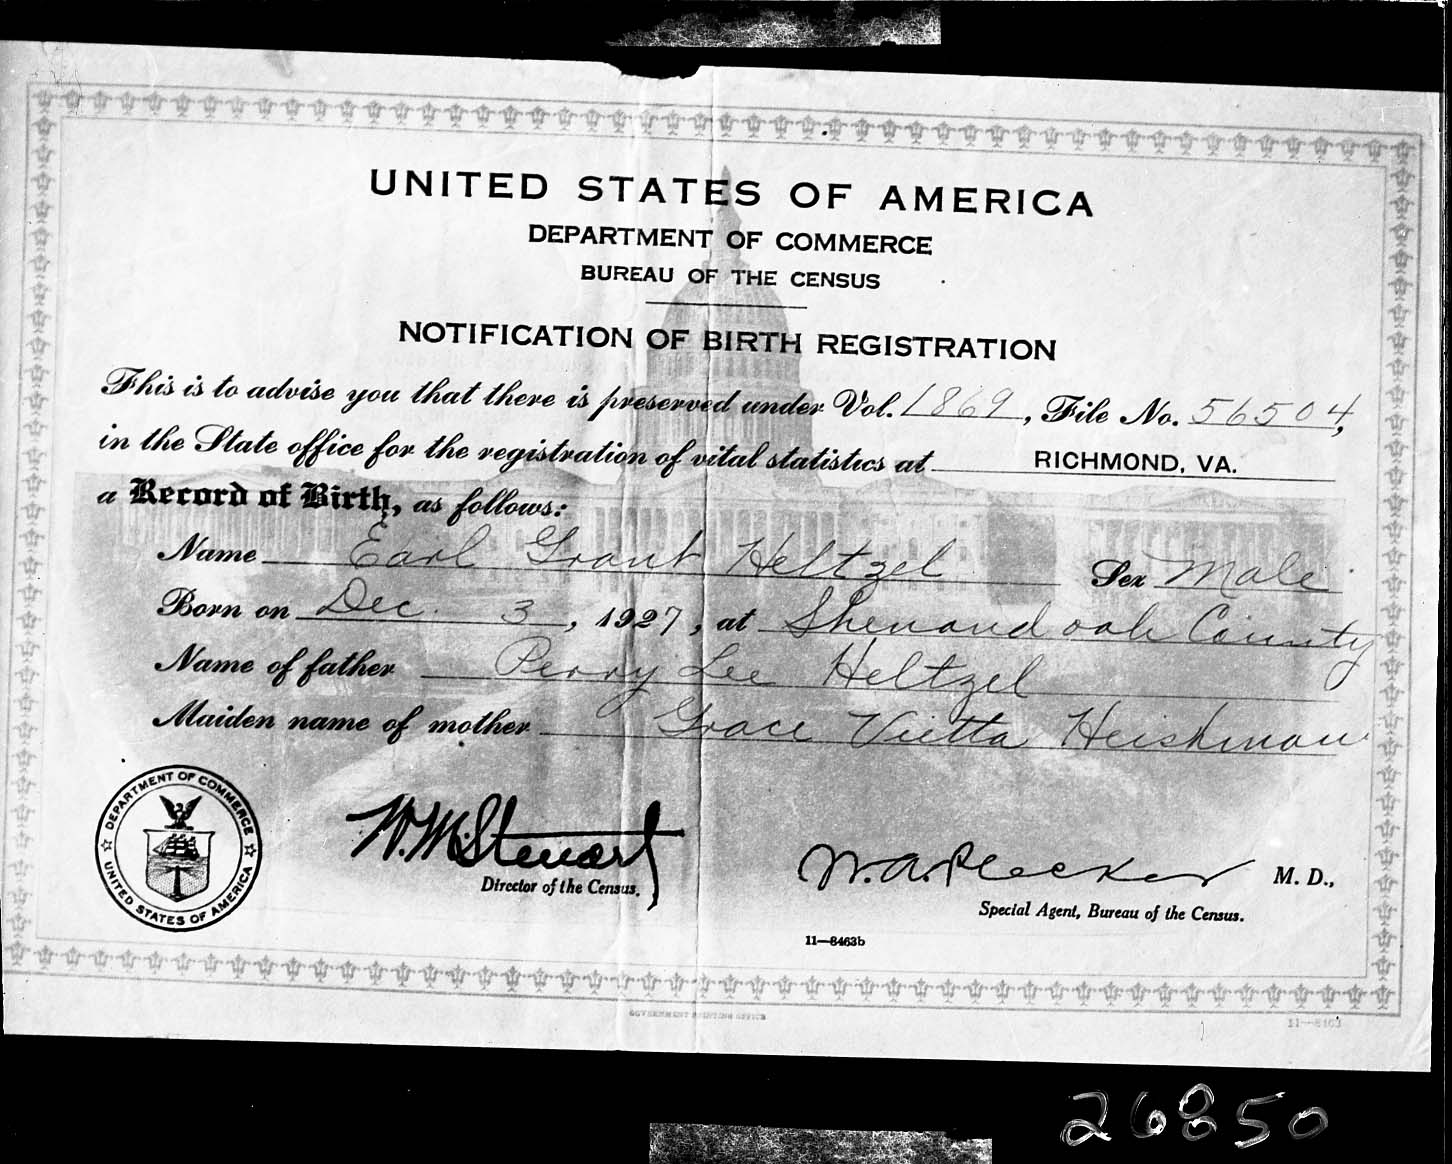 UNITED STATES OF AMERICA
DEPARTMENT OF COMMERCE
BUREAU OF THE CENSUS
NOTIFICATION OF BIRTH REGISTRATION
This is to advise you that there is preserved under Vol. 1869, File No. 56504,
in the State office for the registration of vital statistics at RICHMOND, VA.
a Record of Birth, as follows:
Name Earl Grant Heltzel Sex Male
Born on Dec. 3, 1927, at Shenandoah County
Name of father Perry Lee Heltzel
Maiden name of mother Grace Vietta Heishman
DEPARTMENT OF COMMERCE
UNITED STATES OF AMERICA
W. M. Steuart
Director of the Census.
W. A. Plecker M. D.,
Special Agent, Bureau of the Census.
11—8463b
GOVERNMENT PRINTING OFFICE
11—8463
26850